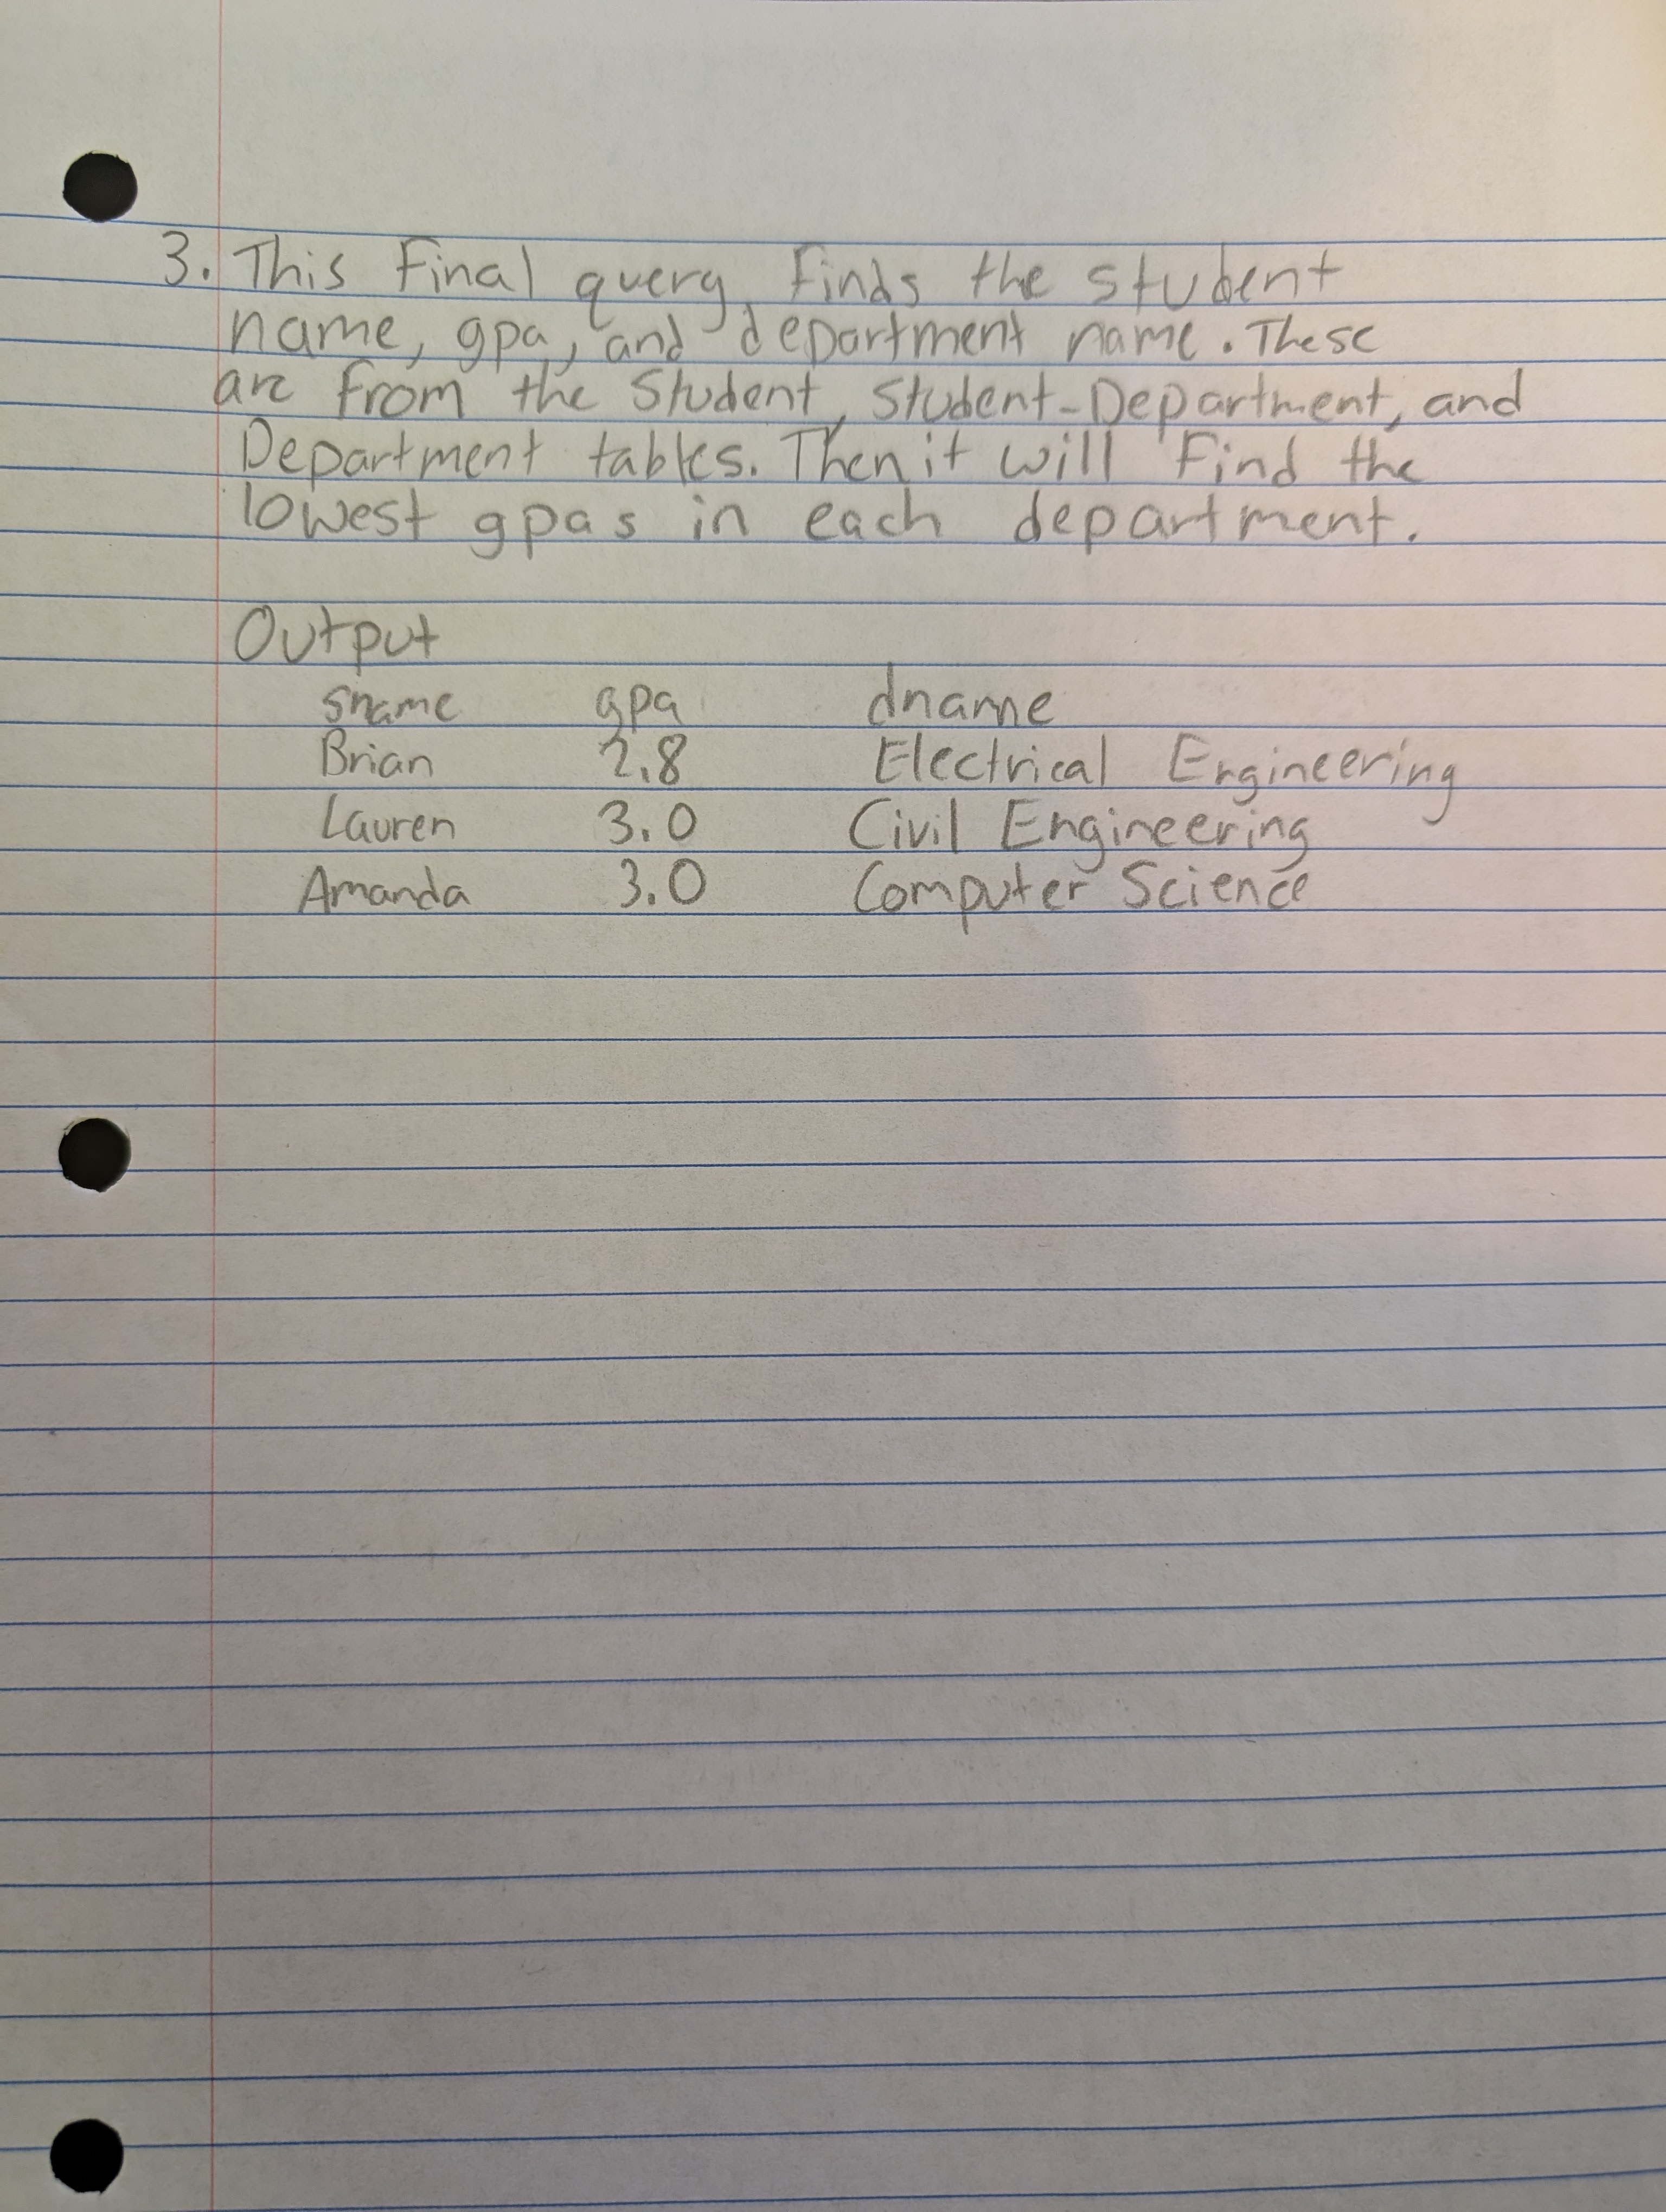 3. This final query finds the student
name, gpa, and department name. These
are from the Student, Student-Department, and
Department tables. Then it will find the
lowest gpas in each department.
Output
sname gpa dname
Brian 2.8 Electrical Engineering
Lauren 3.0 Civil Engineering
Amanda 3.0 Computer Science